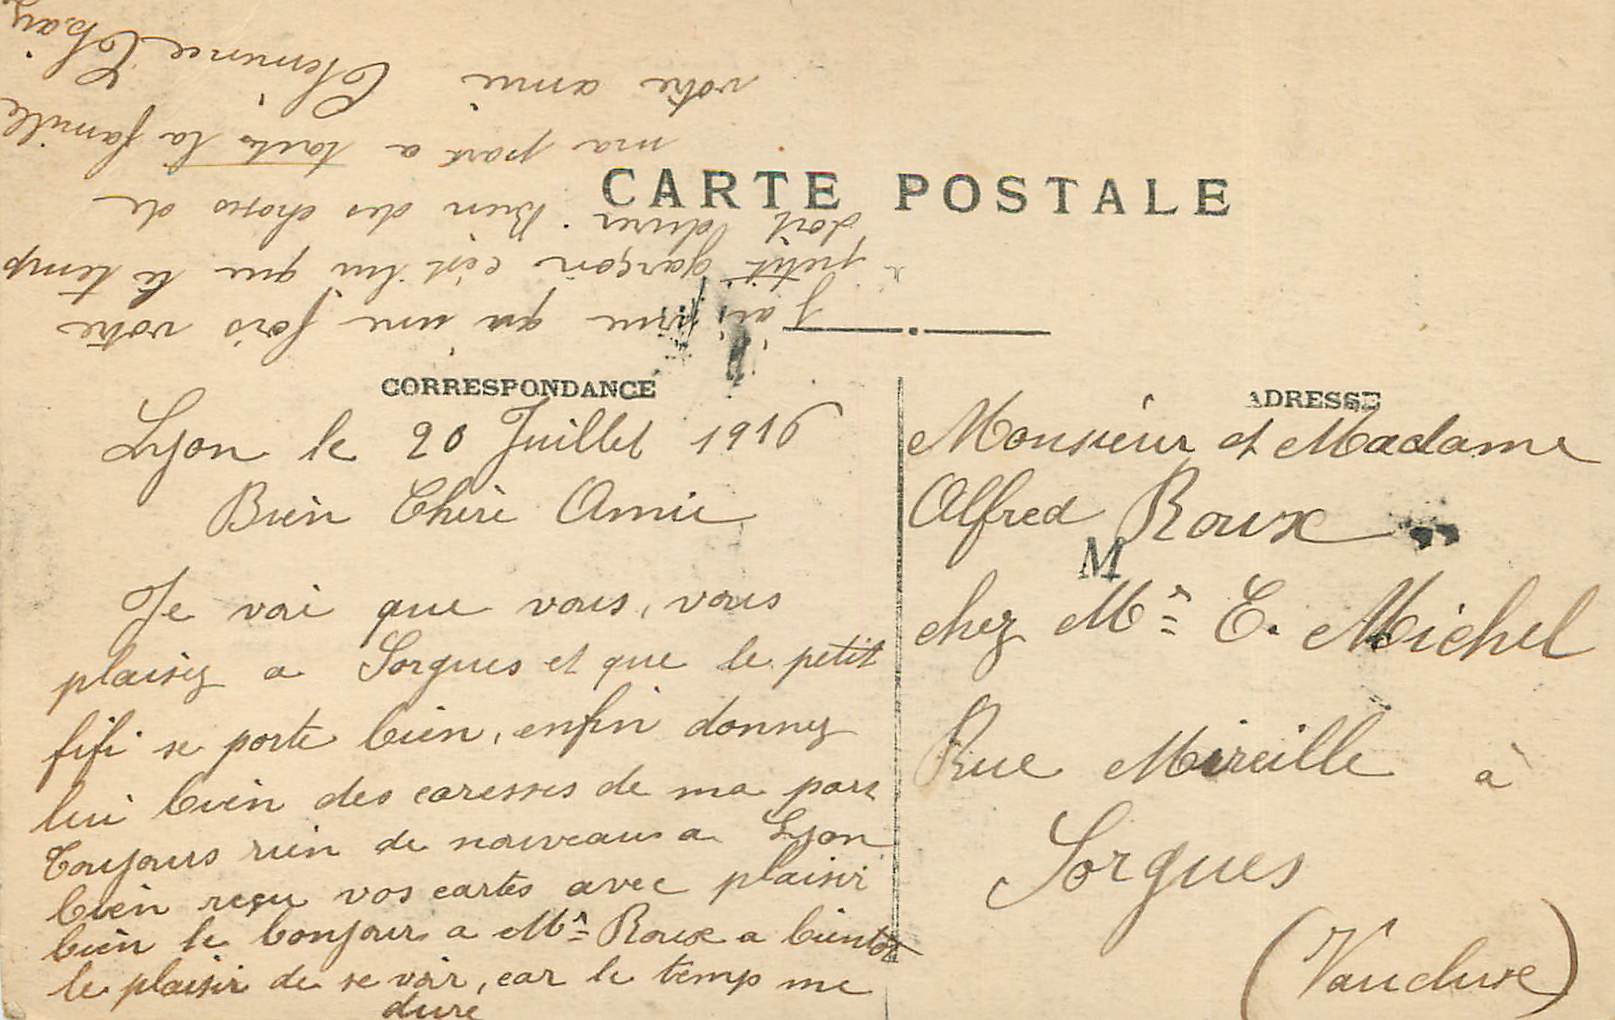 CARTE POSTALE
CORRESPONDANCE
Lyon le 20 Juillet 1916
Bien Chère Amie
Je voi que vous, vous
plaisez a Sorgues et que le petit
fifi se porte bien, enfin donnez
lui bien des caresses de ma part
Toujours rien de nouveau a Lyon
bien reçu vos cartes avec plaisir
bien le bonjour a Mr Roux a bientot
le plaisir de se voir, car le temp me
dure
j'ai vue qu'une fois votre
petit garçon c'est lui que le temp
doit durer. Bien des choses de
ma part a toute la famille
votre amie Clémence
ADRESSE
Monsieur et Madame
Alfred Roux
M
chez Mr E. Michel
Rue Mireille à
Sorgues
(Vaucluse)